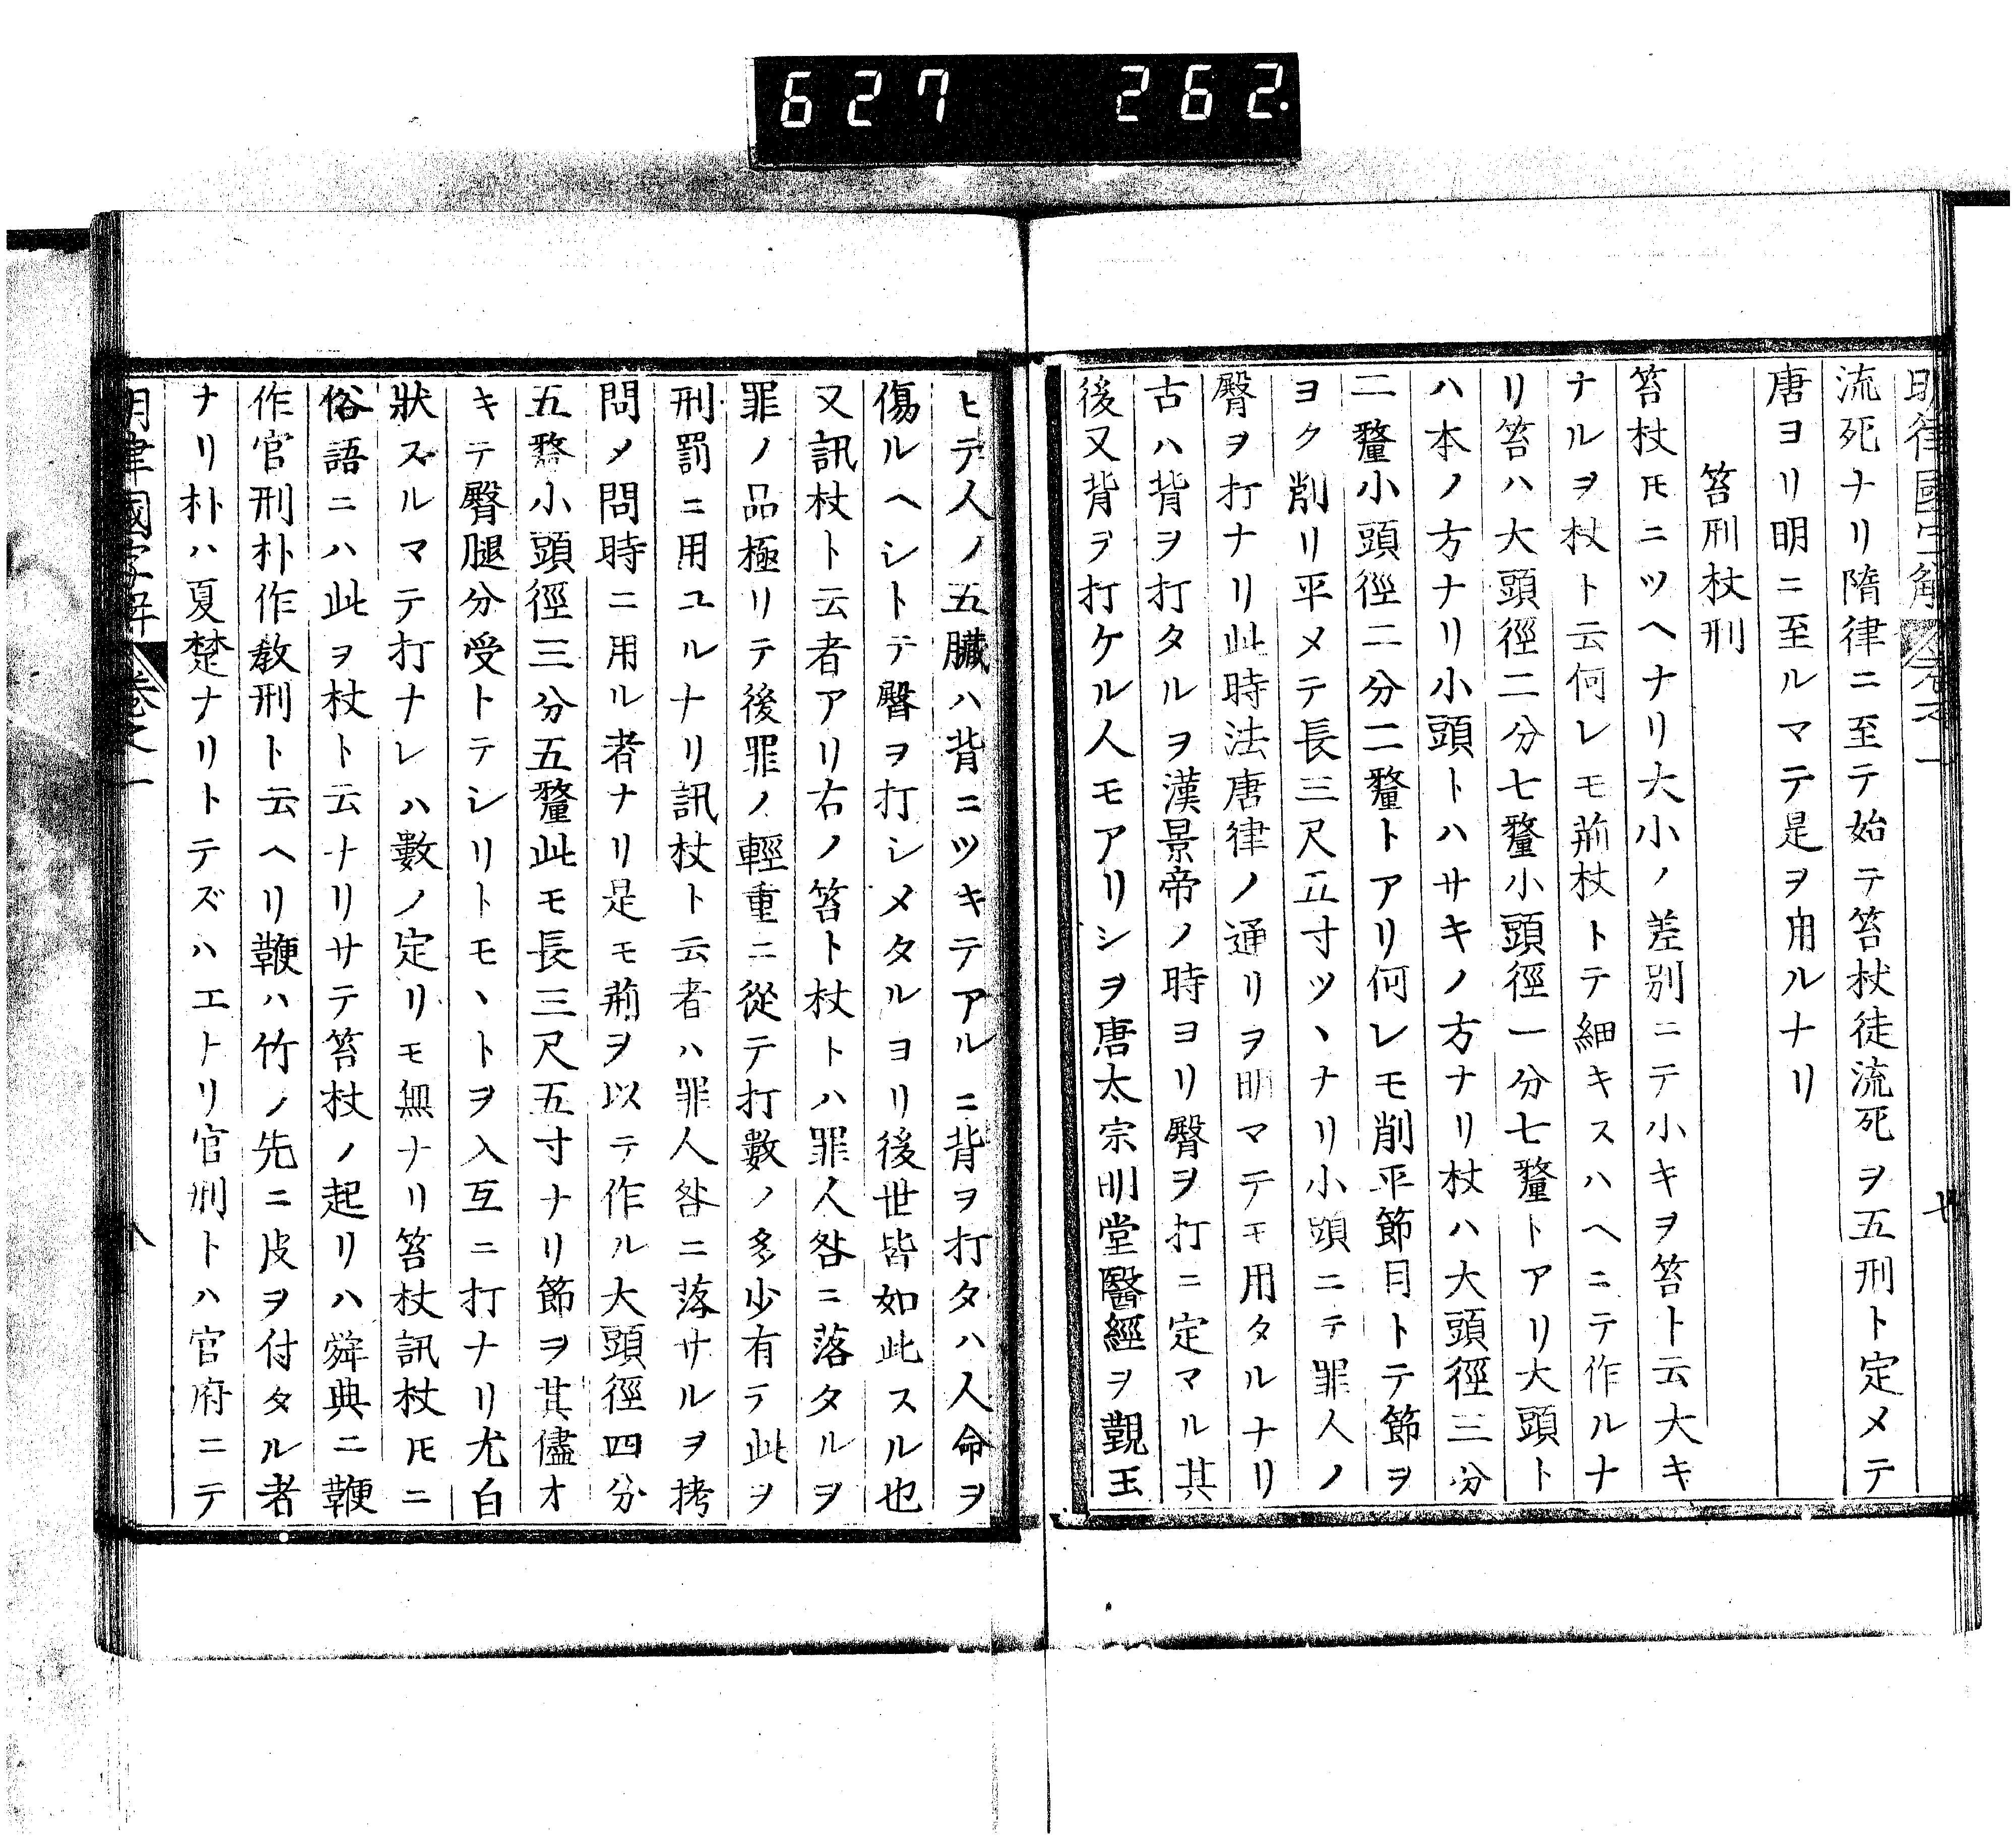 627 262.
明律國字解 卷之一
流死ナリ隋律ニ至テ始テ笞杖徒流死ヲ五刑ト定メテ
唐ヨリ明ニ至ルマテ是ヲ用ルナリ
笞刑杖刑
笞杖𪜈ニツヘナリ大小ノ差別ニテ小キヲ笞ト云大キ
ナルヲ杖ト云何レモ荊杖トテ細キスハヘニテ作ルナ
リ笞ハ大頭徑二分七釐小頭徑一分七釐トアリ大頭ト
ハ本ノ方ナリ小頭トハサキノ方ナリ杖ハ大頭徑三分
二釐小頭徑二分二釐トアリ何レモ削平節目トテ節ヲ
ヨク削リ平メテ長三尺五寸ツヽナリ小頭ニテ罪人ノ
臀ヲ打ナリ此時法唐律ノ通リヲ明マテモ用タルナリ
古ハ背ヲ打タルヲ漢景帝ノ時ヨリ臀ヲ打ニ定マル其
後又背ヲ打ケル人モアリシヲ唐太宗明堂醫經ヲ觀玉
ヒテ人ノ五臟ハ背ニツキテアルニ背ヲ打タハ人命ヲ
傷ルヘシトテ臀ヲ打シメタルヨリ後世皆如此スル也
又訊杖ト云者アリ右ノ笞ト杖トハ罪人咎ニ落タルヲ
罪ノ品極リテ後罪ノ輕重ニ從テ打數ノ多少有テ此ヲ
刑罰ニ用ユルナリ訊杖ト云者ハ罪人咎ニ落サルヲ拷
問メ問時ニ用ル者ナリ是モ荊ヲ以テ作ル大頭徑四分
五釐小頭徑三分五釐此モ長三尺五寸ナリ節ヲ其儘オ
キテ臀腿分受トテシリトモヽトヲ入互ニ打ナリ尤白
狀スルマテ打ナレハ數ノ定リモ無ナリ笞杖訊杖𪜈ニ
俗語ニハ此ヲ杖ト云ナリサテ笞杖ノ起リハ舜典ニ鞭
作官刑朴作敎刑ト云ヘリ鞭ハ竹ノ先ニ皮ヲ付タル者
ナリ朴ハ夏楚ナリトテズハエトリ官刑トハ官府ニテ
明律國字解 卷之一 八